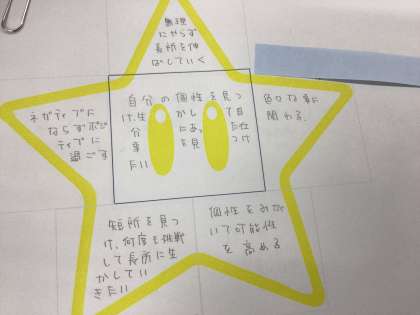 無理
にやらず
長所を伸
ばしていく
ネガティブに
ならずポジ
ティブに
過ごす
自分の個性を見つ
け、生かして自
分にあった仕
事を見つけ
たい
色々な事に
関わる。
短所を見つ
け、何度も挑戦
して長所に生
かしてい
きたい
個性をみが
いて可能性
を高める